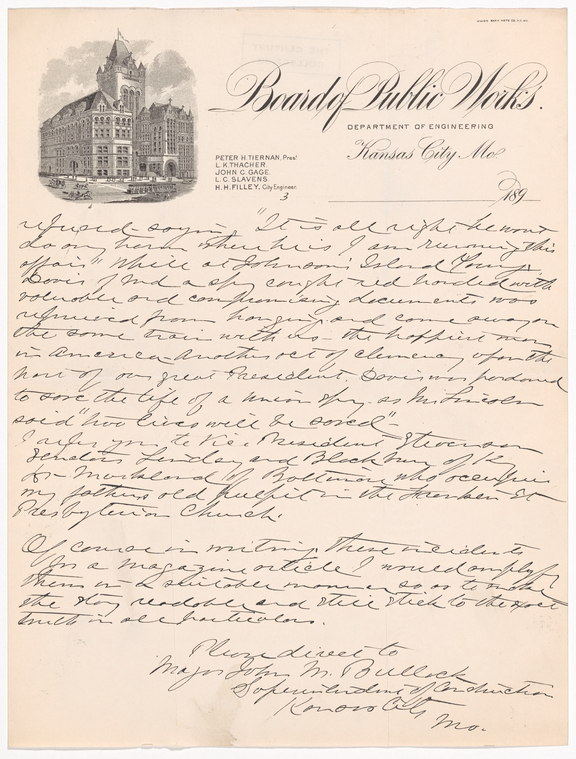 Board of Public Works.
DEPARTMENT OF ENGINEERING
Kansas City, Mo.
PETER H. TIERNAN, Pres!
L. K. THACHER.
JOHN C. GAGE.
L. C. SLAVENS.
H. H. FILLEY, City Engineer.
3
189
refused - saying "It is all right he won't
do any harm where he is I am running this
affair." While at Johnson's Island Young
Davis of Md a spy caught red handed with
valuable and compromising documents was
reprieved from hanging and came away on
the same train with us - the happiest man
in America Another act of clemency upon the
part of our great President. Davis was pardoned
to save the life of a Union spy - as Mr Lincoln
said "two lives will be saved" -
I refer you to Vice President Stevenson
Senators Lindsay and Blackburn of Ky
Dr Markland of Baltimore who occupies
my fathers old pulpit in the Franklin St
Presbyterian Church.
Of course in writing these incidents
for a magazine article I would amplify
them in a suitable manner so as to make
the story readable and still stick to the exact
truth in all particulars.
Please direct to
Major John M. Bullock
Superintendent of Construction
Kansas City
Mo.